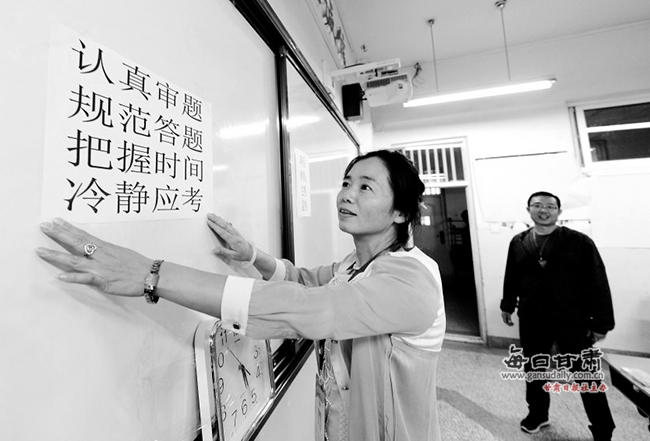 认真审题
规范答题
把握时间
冷静应考
每日甘肃
www.gansudaily.com.cn
甘肃日报社主办